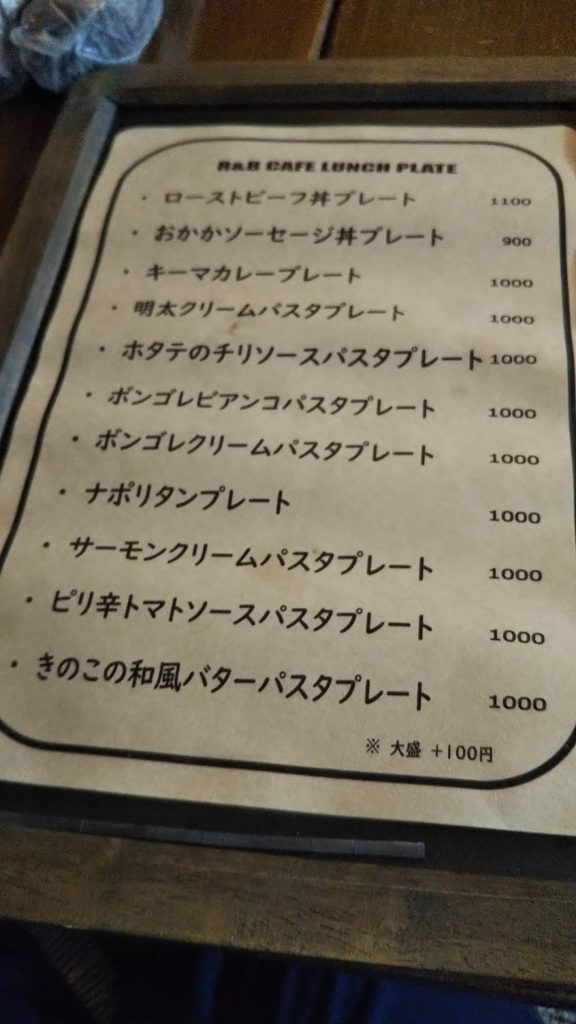 R&B CAFE LUNCH PLATE
・ローストビーフ丼プレート 1100
・おかかソーセージ丼プレート 900
・キーマカレープレート 1000
・明太クリームパスタプレート 1000
・ホタテのチリソースパスタプレート 1000
・ボンゴレビアンコパスタプレート 1000
・ボンゴレクリームパスタプレート 1000
・ナポリタンプレート 1000
・サーモンクリームパスタプレート 1000
・ピリ辛トマトソースパスタプレート 1000
・きのこの和風バターパスタプレート 1000
※ 大盛 +100円